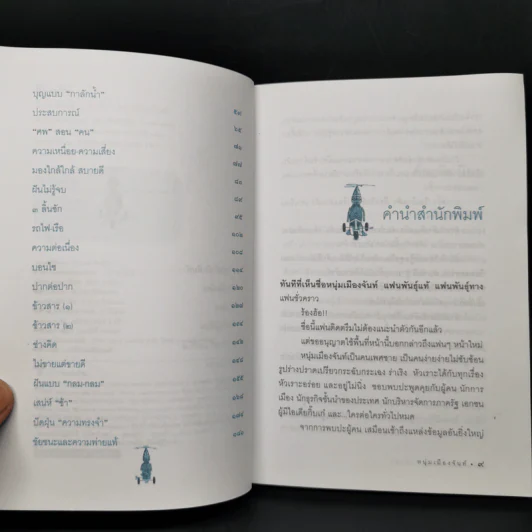 บุญแบบ "กาลักน้ำ"
ประสบการณ์ ๕๙
"ศพ" สอน "คน" ๖๕
ความเหนื่อย-ความเสี่ยง ๗๑
มองใกล้ใกล้ สบายดี ๗๗
ฝันไม่รู้จบ ๘๑
๓ ลิ้นชัก ๘๙
รถไฟ-เรือ ๙๕
ความต่อเนื่อง ๑๐๑
บอนไซ ๑๐๙
ปากต่อปาก
ข้าวสาร (๑)
ข้าวสาร (๒)
ช่างคิด
ไม่ขายแต่ขายดี
ฝันแบบ "กลม-กลม" ๑๕๕
เสน่ห์ "ช้า"
บัดฝุ่น "ความทรงจำ"
ชัยชนะและความพ่ายแพ้
คำนำสำนักพิมพ์
ทันทีที่เห็นชื่อหนุ่มเมืองจันท์ แฟนพันธุ์แท้ แฟนพันธุ์ทาง
แฟนชั่วคราว
ร้องอ๋อ!!
ชื่อนี้แฟนคิดตรึมไม่ต้องแนะนำตัวกันอีกแล้ว
แต่ขออนุญาตใช้พื้นที่หน้านี้บอกกล่าวถึงแฟนๆ หน้าใหม่
หนุ่มเมืองจันท์เป็นคนเพศชาย เป็นคนง่ายง่ายไม่ซับซ้อน
รูปร่างปราดเปรียวกระฉับกระเฉง ร่าเริง หัวเราะได้กับทุกเรื่อง
หัวเราะอร่อย และอยู่ไม่นิ่ง ชอบพบปะพูดคุยกับผู้คน นักการ
เมือง นักธุรกิจชั้นนำของประเทศ นักบริหารจัดการภาครัฐ เอกชน
ผู้มีไอเดียกิ๊บเก๋ และ...ใครต่อใครทั่วไปหมด
จากการพบปะผู้คน เสมือนเข้าถึงแหล่งข้อมูลอันยิ่งใหญ่
หนุ่มเมืองจันท์ • ๙